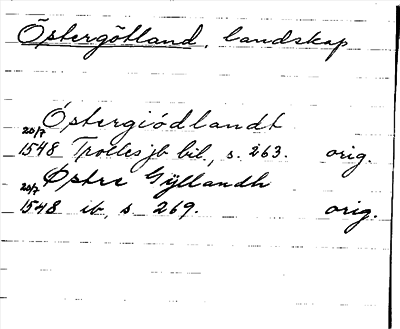 Östergötland, landskap
Östergiödlandt
20/7 1548 Trolles jb bil., s. 263. orig.
Østre Gÿllandh
20/7 1548 ib, s 269. orig.